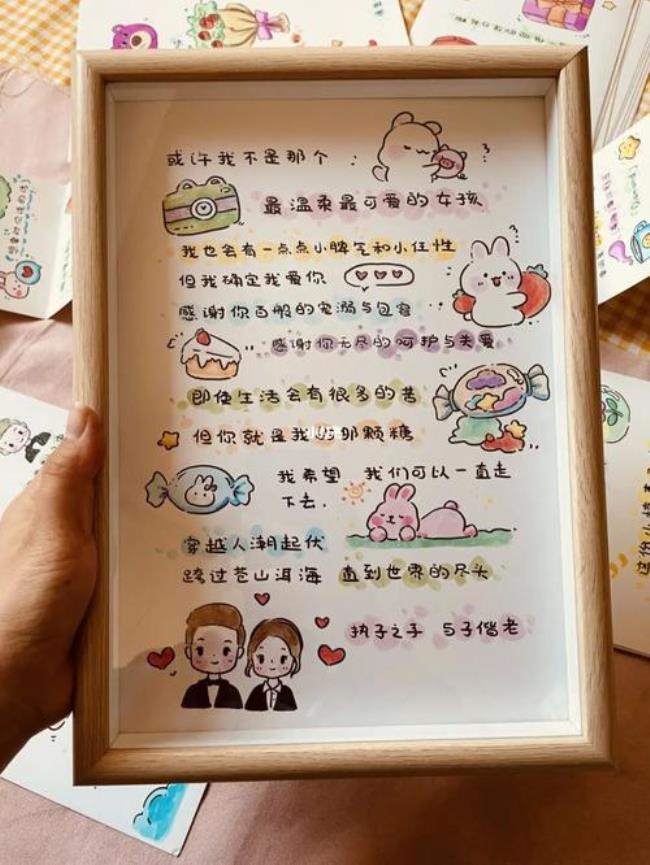 或许我不是那个
最温柔最可爱的女孩
我也会有一点点小脾气和小任性
但我确定我爱你
感谢你百般的宠溺与包容
感谢你无尽的呵护与关爱
即使生活会有很多的苦
但你就是我 那颗糖
我希望 我们可以一直走
下去.
穿越人潮起伏
跨过苍山洱海 直到世界的尽头
执子之手 与子偕老